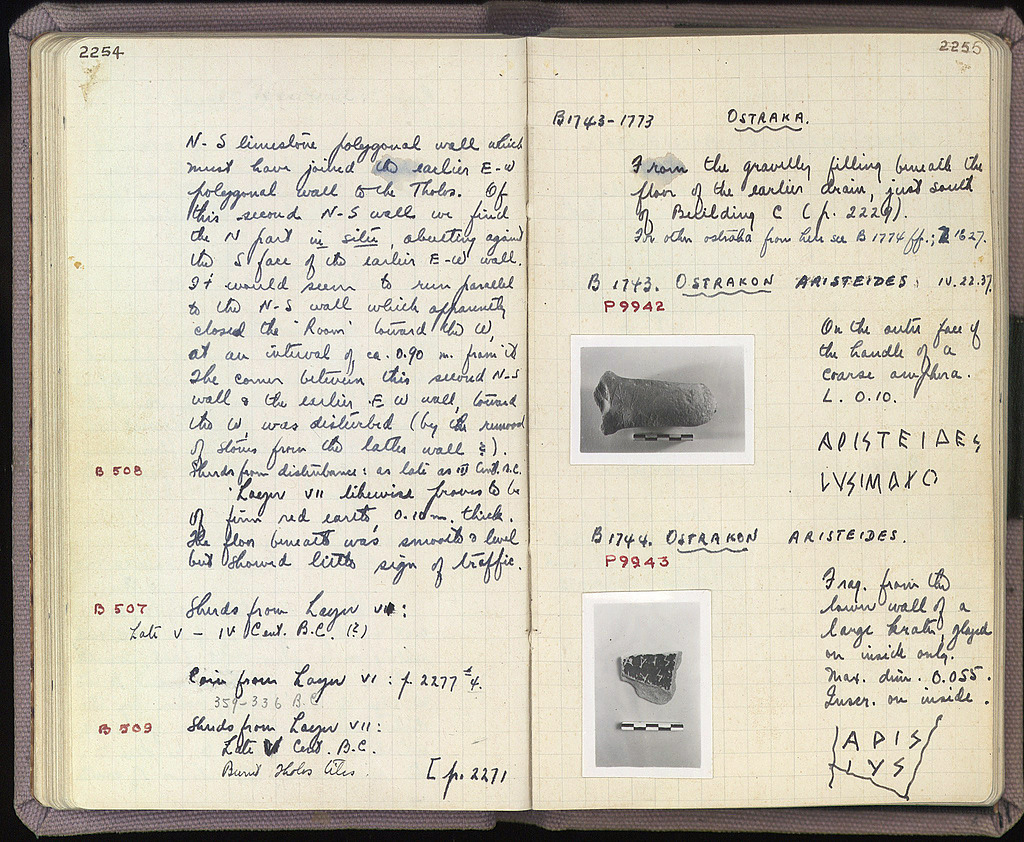 2254
N-S limestone polygonal wall which
must have joined the earlier E-W
polygonal wall to the Tholos. Of
this second N-S wall we find
the N part in situ, abutting against
the S face of the earlier E-W wall.
It would seem to run parallel
to the N-S wall which apparently
closed the 'Room' toward the W,
at an interval of ca. 0.90 m. from it
The corner between this second N-S
wall & the earlier E W wall, toward
the W, was disturbed (by the removal
of stones from the latter wall ?).
B 508 Sherds from disturbance: as late as III Cent. B.C.
Layer VII likewise proves to be
of firm red earth, 0.10 m. thick.
The floor beneath was smooth & level
but showed little sign of traffic.
B 507 Sherds from Layer VI:
Late V - IV Cent. B.C. (?)
Coin from Layer VI: p. 2277 #4.
359-336 B.C.
B 509 Sherds from Layer VII:
Late V Cent. B.C.
Burnt Tholos tiles.
[p. 2271
2255
B1743-1773 OSTRAKA.
From the gravelly filling beneath the
floor of the earlier drain, just south
of Building C (p. 2229).
For other ostraka from here see B 1774 ff.; 1827.
B 1743. OSTRAKON ARISTEIDES. IV.22.37.
P9942
On the outer face of
the handle of a
coarse amphora.
L. 0.10.
ΑΡΙSΤΕΙΔΕS
LVSIMAXO
B 1744. OSTRAKON ARISTEIDES.
P9943
Frag. from the
lower wall of a
large krater, glazed
on inside only.
Max. dim. 0.055.
Inscr. on inside.
ΑΡΙS
LVS